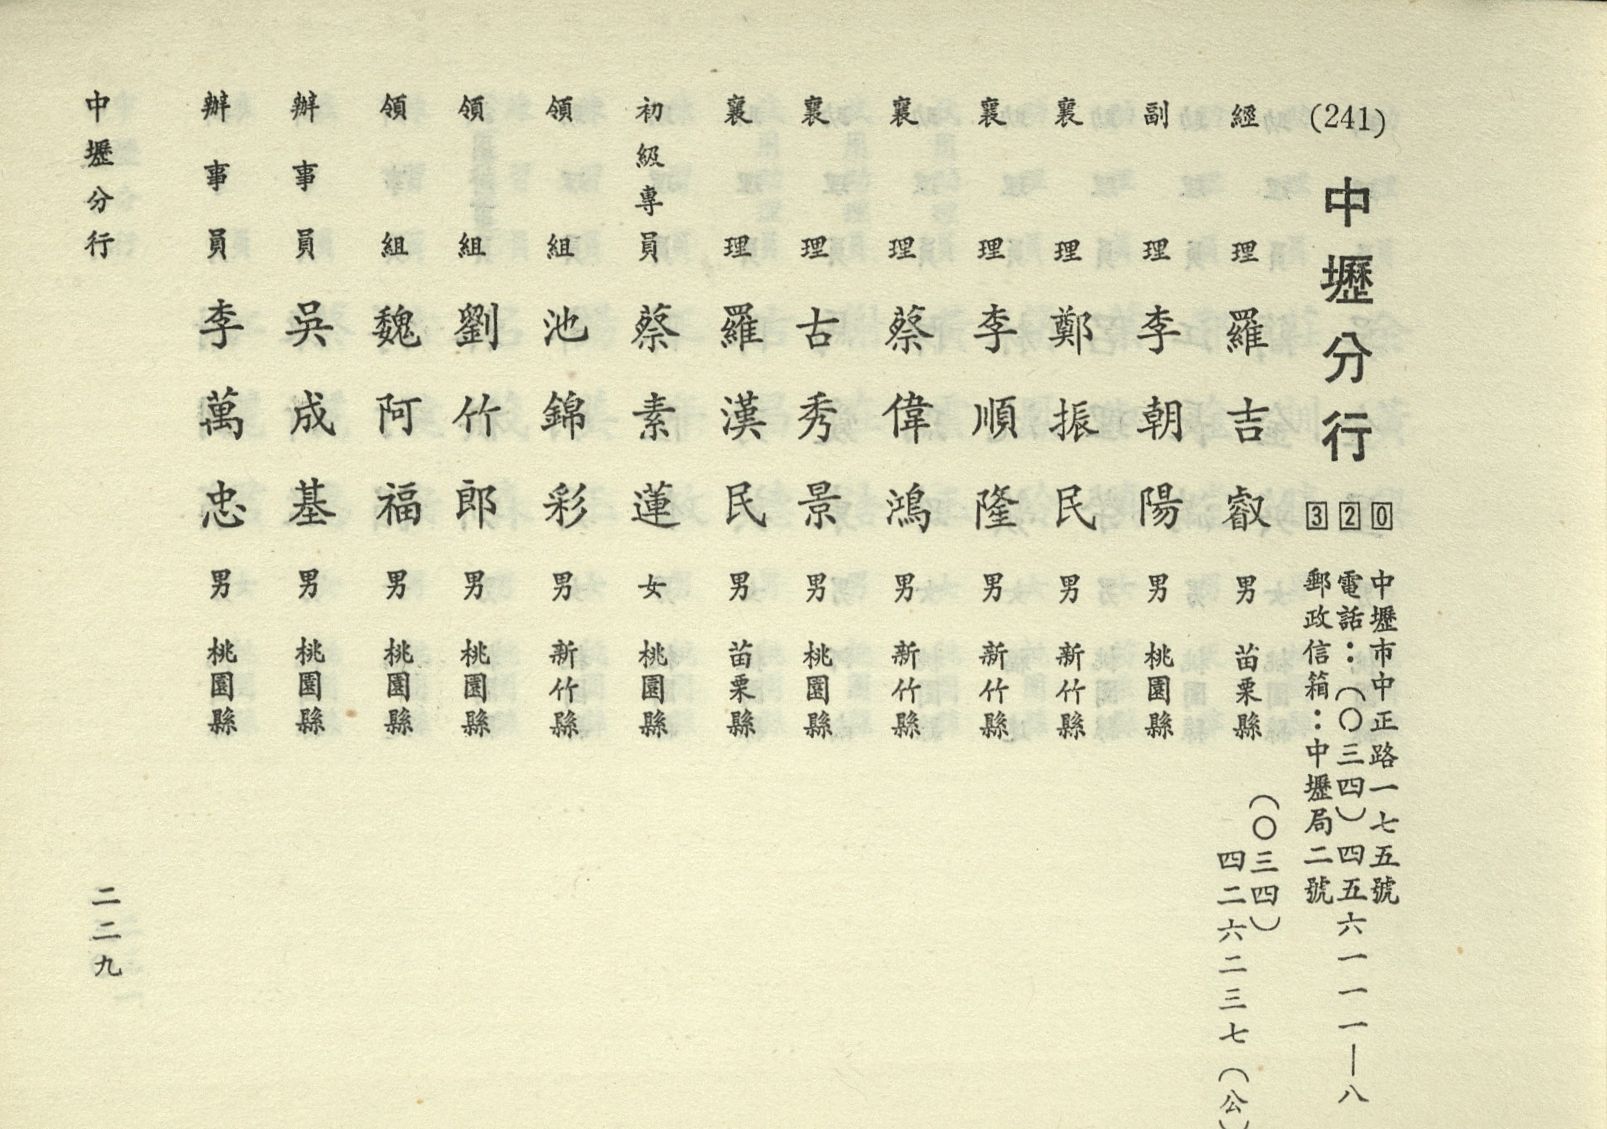 (241)
中壢分行
320
中壢市中正路一七五號
電話：(〇三四)四五六一一一一｜八
郵政信箱：中壢局二號
經理 羅吉叡 男 苗栗縣 (〇三四)四二六二三七(公)
副理 李朝陽 男 桃園縣
襄理 鄭振民 男 新竹縣
襄理 李順隆 男 新竹縣
襄理 蔡偉鴻 男 新竹縣
襄理 古秀景 男 桃園縣
襄理 羅漢民 男 苗栗縣
初級專員 蔡素蓮 女 桃園縣
領組 池錦彩 男 新竹縣
領組 劉竹郎 男 桃園縣
領組 魏阿福 男 桃園縣
辦事員 吳成基 男 桃園縣
辦事員 李萬忠 男 桃園縣
中壢分行
二二九